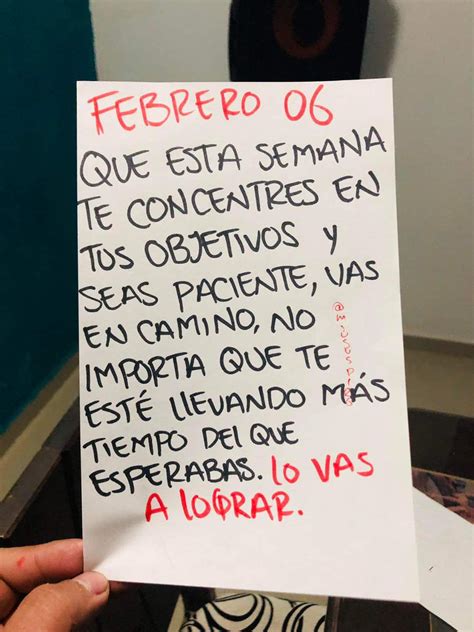 FEBRERO 06
QUE ESTA SEMANA
TE CONCENTRES EN
TUS OBJETIVOS Y
SEAS PACIENTE, VAS
EN CAMINO, NO
IMPORTA QUE TE
ESTÉ LLEVANDO MÁS
TIEMPO DEL QUE
ESPERABAS. LO VAS
A LOGRAR.